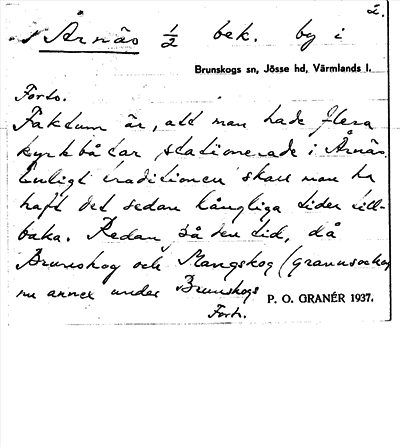 2.
Årnäs 1/2 bek. by i
Brunskogs sn, Jösse hd, Värmlands l.
Forts.
Faktum är, att man hade flera
kyrkbåtar stationerade i Årnäs.
Enligt traditionen skall man ha
haft det sedan långliga tider till-
baka. Redan på den tid, då
Brunskog och Mangskog (grannsocken
nu annex under Brunskogs
P. O. GRANÉR 1937.
Forts.